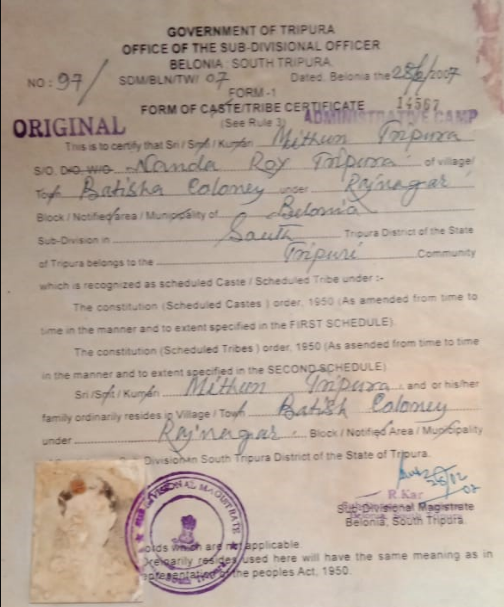 GOVERNMENT OF TRIPURA
OFFICE OF THE SUB-DIVISIONAL OFFICER
BELONIA : SOUTH TRIPURA.
NO : 97/ SDM/BLN/TW/ 07 Dated, Belonia the 2007
FORM -1
FORM OF CASTE/TRIBE CERTIFICATE 14567
ORIGINAL (See Rule 3) ADMINISTRATIVE CAMP
This is to certify that Sri / Smti / Kumari Mithun Tripura
S/O. D/O. W/O. Nanda Roy Tripura of village/
Town Batisha Coloney under Rajnagar
Block / Notified area / Municipality of Belonia
Sub-Division in South Tripura District of the State
of Tripura belongs to the Tripuri Community
which is recognized as scheduled Caste / Scheduled Tribe under :-
The constitution (Scheduled Castes ) order, 1950 (As amended from time to
time in the manner and to extent specified in the FIRST SCHEDULE)
The constitution (Scheduled Tribes ) order, 1950 (As asended from time to time
in the manner and to extent specified in the SECOND SCHEDULE)
Sri /Smti / Kumari Mithun Tripura and or his/her
family ordinarily resides in Village / Town Batish Coloney
under Rajnagar Block / Notified Area / Municipality
Division South Tripura District of the State of Tripura.
R.Kar
Sub-Divisional Magistrate
Belonia, South Tripura.
SUB DIVISIONAL MAGISTRATE
which are not applicable
resides used here will have the same meaning as in
the peoples Act, 1950.